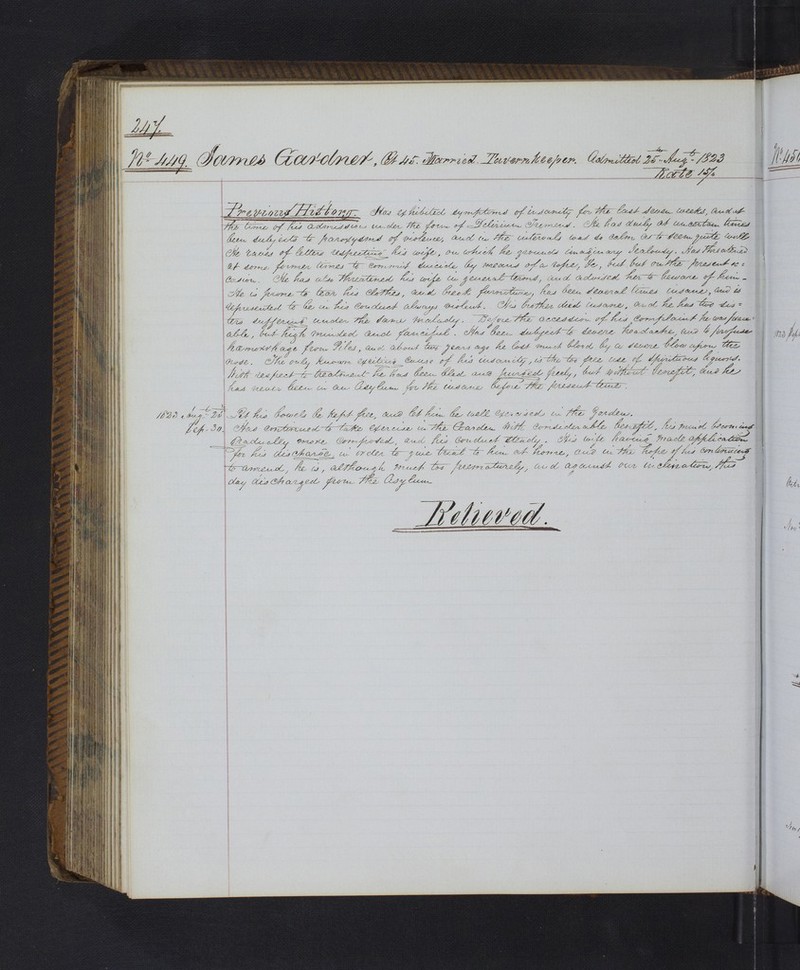 247.
No. 449. James Gardner, Æt 45. Married. Tavernkeeper. Admitted 25th Augt. 1823
Rate 15/.
Previous History. Has exhibited symptoms of insanity for the last seven weeks, and at
the time of his admission under the form of Delerium Tremens. He has daily at uncertain times
been subject to paroxysms of violence, and in the intervals was so calm, as to seem quite well
He raves of letters respecting his wife, on which he grounds imaginary Jealousy. Has threatened
at some former times to commit suicide by means of a rope, &c, but not on the present oc=
casion. He has also threatened his wife in general terms, and advised her to beware of him.
He is prone to tear his clothes, and break furniture, has been several times insane, and is
represented to be in his conduct always violent. His brother died insane, and he has two sis=
ters suffering under the same malady. Before the accession of his complaint he was
able, but high minded and fanciful. Has been subject to severe headache, and to profuse
hæmorrhage from Piles, and about two years ago he lost much blood by a severe blow upon the
nose. The only known exciting cause of his insanity, is the too free use of Spirituous liquors.
With respect to treatment he has been bled and purged freely, but without benefit, and he
has never been in an Asylum for the insane before the present time.
1823. Augt. 25th Let his bowels be kept free, and let him be well exercised in the Garden.
Sep. 30. Has continued to take exercise in the Garden with considerable benefit, his mind becoming
gradually more composed, and his conduct steady. His wife having made application
for his discharge in order to give trial to him at home, and in the hope of his continuing
to amend, he is, although much too prematurely, and against our inclination, this
day discharged from the Asylum
Relieved.
No. 450